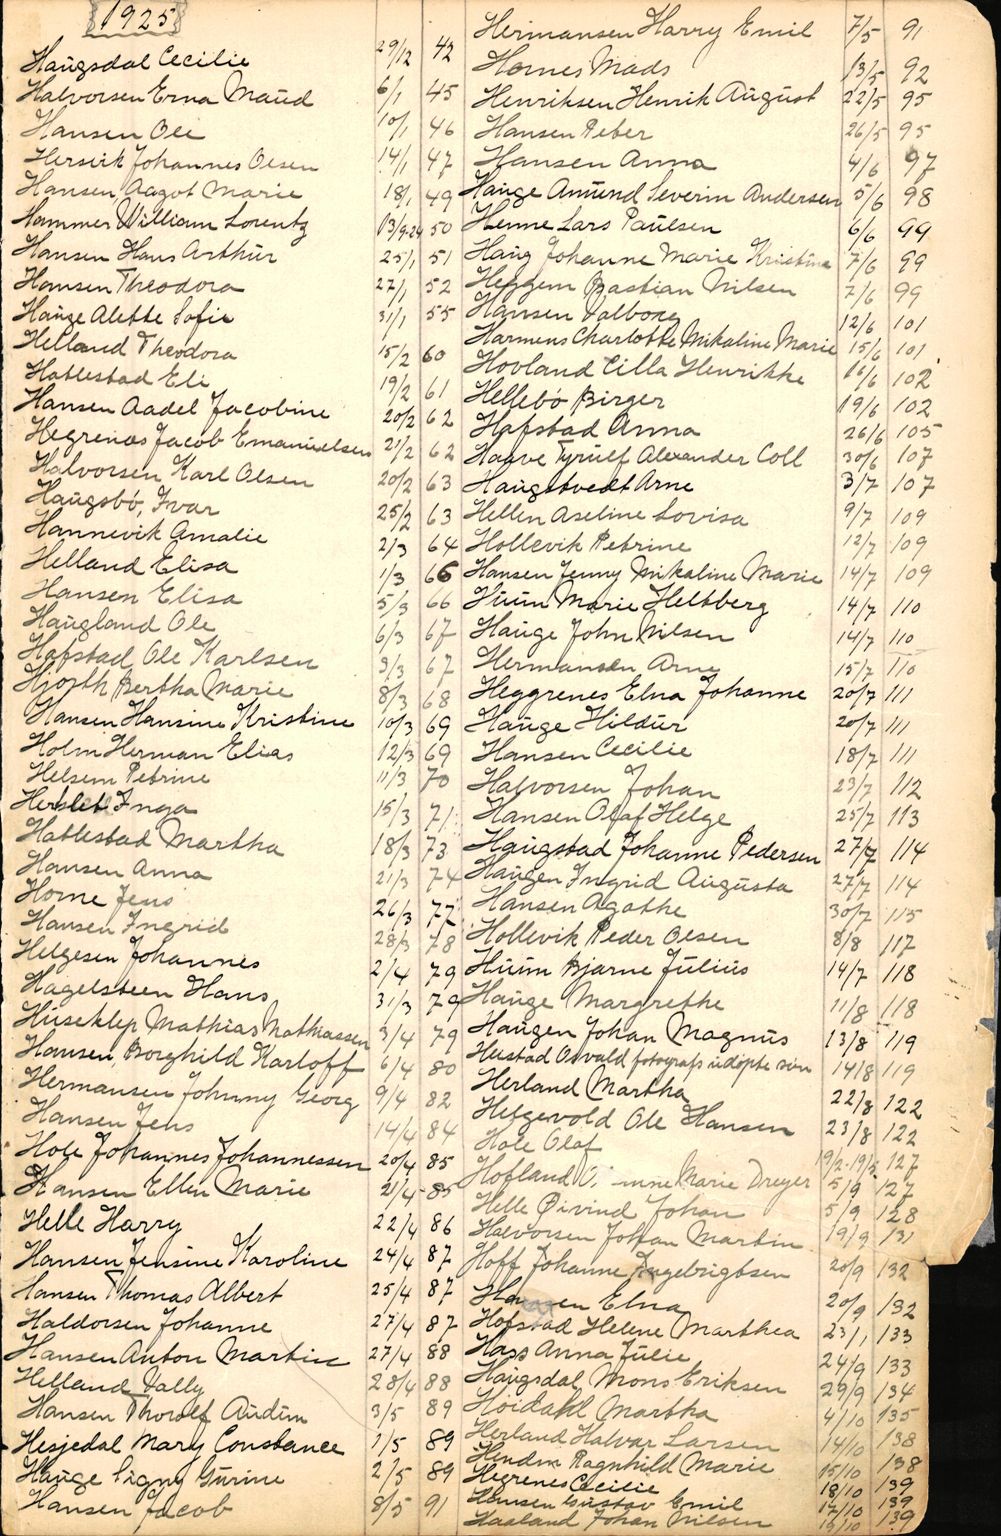 1925
Haugsdal Cecilie 29/12 42
Halvorsen Erna Maud 6/1 45
Hansen Ole 10/1 46
Hersvik Johannes Olsen 14/1 47
Hansen Aagot Marie 18/1 49
Hammer William Lorentz 13/9-24 50
Hansen Hans Arthur 25/1 51
Hansen Theodora 27/1 52
Hauge Alette Sofie 31/1 55
Helland Theodora 15/2 60
Hatlestad Eli 19/2 61
Hansen Aadel Jacobine 20/2 62
Hegrenæs Jacob Emanuelsen 21/2 62
Halvorsen Karl Olsen 20/2 63
Haugsbö, Ivar 25/2 63
Hannevik Amalie 2/3 64
Helland Elisa 1/3 66
Hansen Elisa 5/3 66
Haugland Ole 6/3 67
Hafstad Ole Karlsen 3/3 67
Hjorth Bertha Marie 8/3 68
Hansen Hansine Kristine 10/3 69
Holm Herman Elias 12/3 69
Helsem Petrine 11/3 70
Herslet Inga 15/3 71
Hatlestad Martha 18/3 73
Hansen Anna 21/3 74
Horne Jens 26/3 77
Hansen Ingrid 28/3 78
Helgesen Johannes 2/4 79
Hagelsteen Hans 31/3 79
Huseklep Mathias Mathiassen 3/4 79
Hansen Borghild Karloff 6/4 80
Hermansen Johnny Georg 9/4 82
Hansen Jens 14/4 84
Hole Johannes Johannessen 20/4 85
Hansen Ellen Marie 21/4 85
Helle Harry 22/4 86
Hansen Jensine Karoline 24/4 87
Hansen Thomas Albert 25/4 87
Haldorsen Johanne 27/4 87
Hansen Anton Martin 27/4 88
Helland Vally 28/4 88
Hansen Thorolf Audun 3/5 89
Hesjedal Mary Constance 1/5 89
Hauge Signy Gurine 2/5 89
Hansen Jacob 8/5 91
Hermansen Harry Emil 7/5 91
Hornes Mads 13/5 92
Henriksen Henrik August 22/5 95
Hansen Peter 26/5 95
Hansen Anna 4/6 97
Hauge Amund Severin Andersen 5/6 98
Henne Lars Paulsen 6/6 99
Haug Johanne Marie Kristine 7/6 99
Heggem Bastian Nilsen 7/6 99
Hansen Valborg 12/6 101
Harmens Charlotte Mikaline Marie 15/6 101
Hovland Cilla Henrikke 16/6 102
Hellebö Birger 19/6 102
Hafstad Anna 26/6 105
Haave Tyrulf Alexander Coll 30/6 107
Haugstvedt Arne 3/7 107
Hellen Aseline Lovisa 9/7 109
Hollevik Petrine 12/7 109
Hansen Jenny Mikaline Marie 14/7 109
Huun Marie Heltberg 14/7 110
Hauge John Nilsen 14/7 110
Hermansen Arne 15/7 110
Heggrenes Elna Johanne 20/7 111
Hauge Hildur 20/7 111
Hansen Cecilie 18/7 111
Halvorsen Johan 23/7 112
Hansen Olaf Helge 25/7 113
Haugstad Johanne Pedersen 27/7 114
Haugen Ingrid Augusta 27/7 114
Hansen Agathe 30/7 115
Hollevik Peder Olsen 8/8 117
Huun Bjarne Julius 14/7 118
Hauge Margrethe 11/8 118
Haugen Johan Magnus 13/8 119
Hustad Osvald fotografs udöpte sön 14/8 119
Herland Martha 22/8 122
Helgevold Ole Hansen 23/8 122
Hole Olaf 19/2-19/5 127
Hofland Marie Dreyer 5/9 127
Helle Øivind Johan 5/9 128
Halvorsen Johan Martin 19/9 131
Hoff Johanne Ingebrigtsen 20/9 132
Elna 20/9 132
Hofstad Helene Marthea 23/1 133
Hass Anna Julie 24/9 133
Haugsdal Mons Eriksen 29/9 134
Høidahl Martha 4/10 135
Herland Halvar Larsen 14/10 138
Ragnhild Marie 15/10 138
Hegrenes Cecilie 18/10 139
Hansen Gustav Emil 17/10 139
Haaland Johan Nilsen 19/10 139